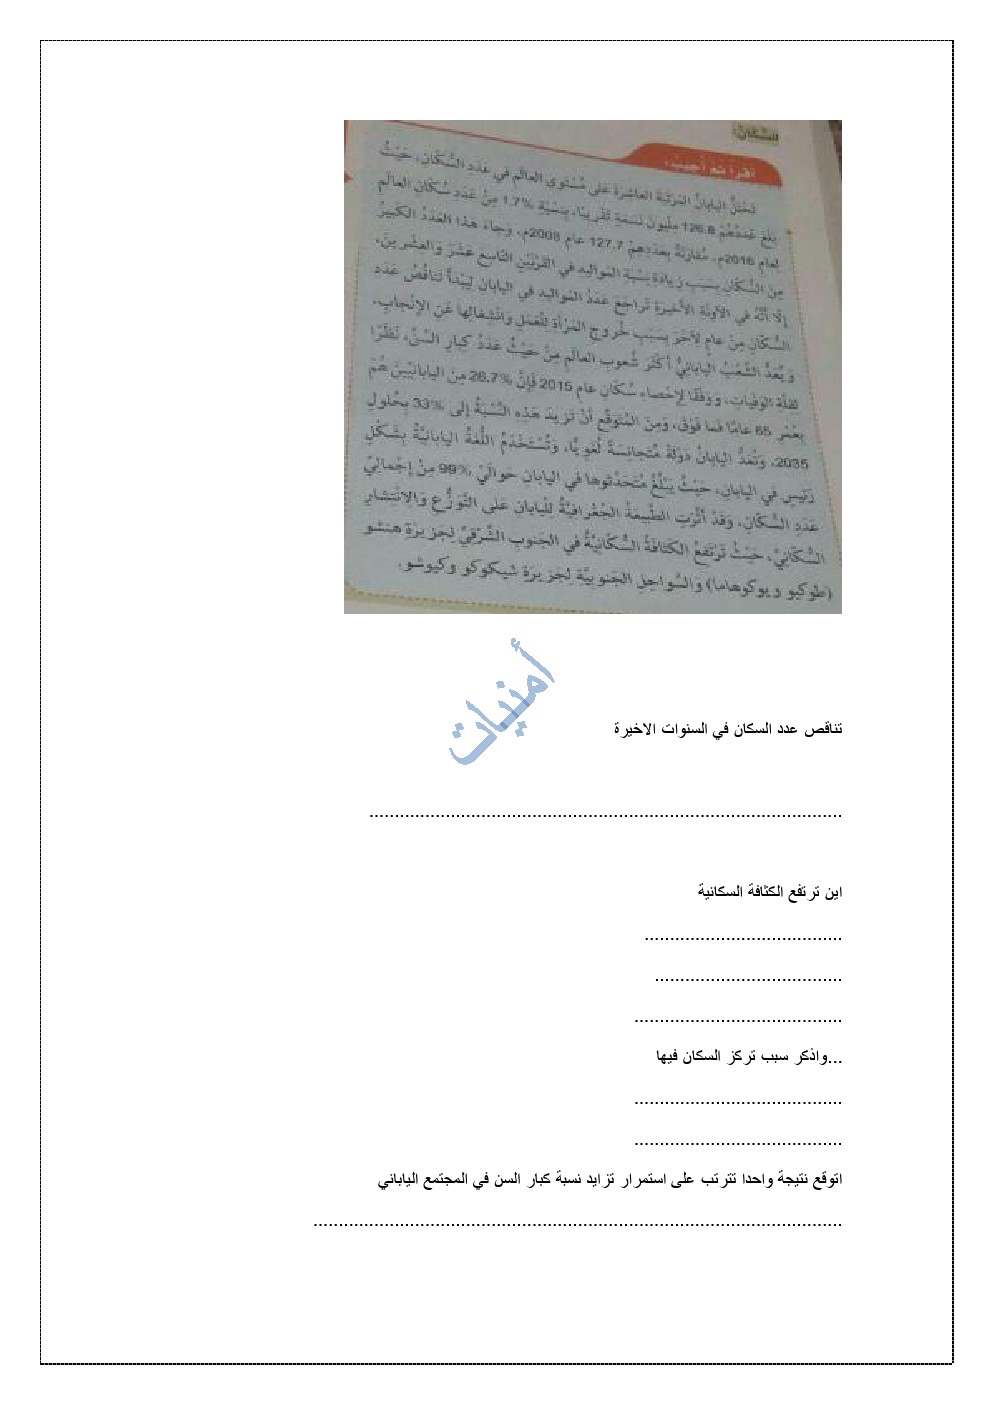 السُّكّان:
أَقْرَأُ ثُمَّ أُجيبُ:
تَحْتَلُّ اليابانُ المَرْتَبَةَ العاشِرَةَ عَلى مُسْتَوى العالَمِ في عَدَدِ السُّكّانِ، حَيْثُ
بَلَغَ عَدَدُهُمْ 126.8 مِلْيونَ نَسَمَةٍ تَقْريبًا، بِنِسْبَةِ 1.7% مِنْ عَدَدِ سُكّانِ العالَمِ
لِعامِ 2016م، مُقارَنَةً بِعَدَدِهِمْ 127.7 عام 2008م، وجاءَ هذا العَدَدُ الكَبيرُ
مِنَ السُّكّانِ بِسَبَبِ زِيادَةِ نِسْبَةِ المَواليدِ في القَرْنَيْنِ التّاسِعَ عَشَرَ وَالعِشْرينَ،
إِلّا أَنَّهُ في الآوِنَةِ الأَخيرَةِ تَراجَعَ عَدَدُ المَواليدِ في اليابان لِيَبْدَأَ تَناقُصُ عَدَدِ
السُّكّانِ مِنْ عامٍ لِآخَرَ بِسَبَبِ خُروجِ المَرْأَةِ لِلْعَمَلِ وَانْشِغالِها عَنِ الإِنْجابِ.
وَيُعَدُّ الشَّعْبُ اليابانِيُّ أَكْثَرَ شُعوبِ العالَمِ مِنْ حَيْثُ عَدَدُ كِبارِ السِّنِّ، نَظَرًا
لِقِلَّةِ الوَفَياتِ، وَوَفْقًا لِإحْصاءِ سُكّانِ عام 2015 فَإِنَّ 26.7% مِنَ اليابانِيّينَ هُمْ
بِعُمْرِ 65 عامًا فَما فَوْقَ، وَمِنَ المُتَوَقَّعِ أَنْ تَزيدَ هَذِهِ النِّسْبَةُ إلى 33% بِحُلولِ
2035، وَتُعَدُّ اليابانُ دَوْلَةً مُتَجانِسَةً لُغَوِيًّا، وَتُسْتَخْدَمُ اللُّغَةُ اليابانِيَّةُ بِشَكْلٍ
رَئيسٍ في اليابان، حَيْثُ يَبْلُغُ مُتَحَدِّثوها في اليابان حَوالَيْ 99% مِنْ إِجْمالِيِّ
عَدَدِ السُّكّانِ، وَقَدْ أَثَّرَتِ الطَّبيعَةُ الجُغْرافِيَّةُ لِلْيابان عَلى التَّوَزُّعِ وَالِانْتِشارِ
السُّكّانِيِّ، حَيْثُ تَرْتَفِعُ الكَثافَةُ السُّكّانِيَّةُ في الجَنوبِ الشَّرْقِيِّ لِجَزيرَةِ هنشو
(طوكيو ويوكوهاما) وَالسَّواحِلِ الجَنوبِيَّةِ لِجَزيرَةِ شيكوكو وكيوشو.
أمنيات
تناقص عدد السكان في السنوات الاخيرة
.............................................................................................
اين ترتفع الكثافة السكانية
.......................................
.....................................
.........................................
...واذكر سبب تركز السكان فيها
.........................................
.........................................
اتوقع نتيجة واحدا تترتب على استمرار تزايد نسبة كبار السن في المجتمع الياباني
........................................................................................................